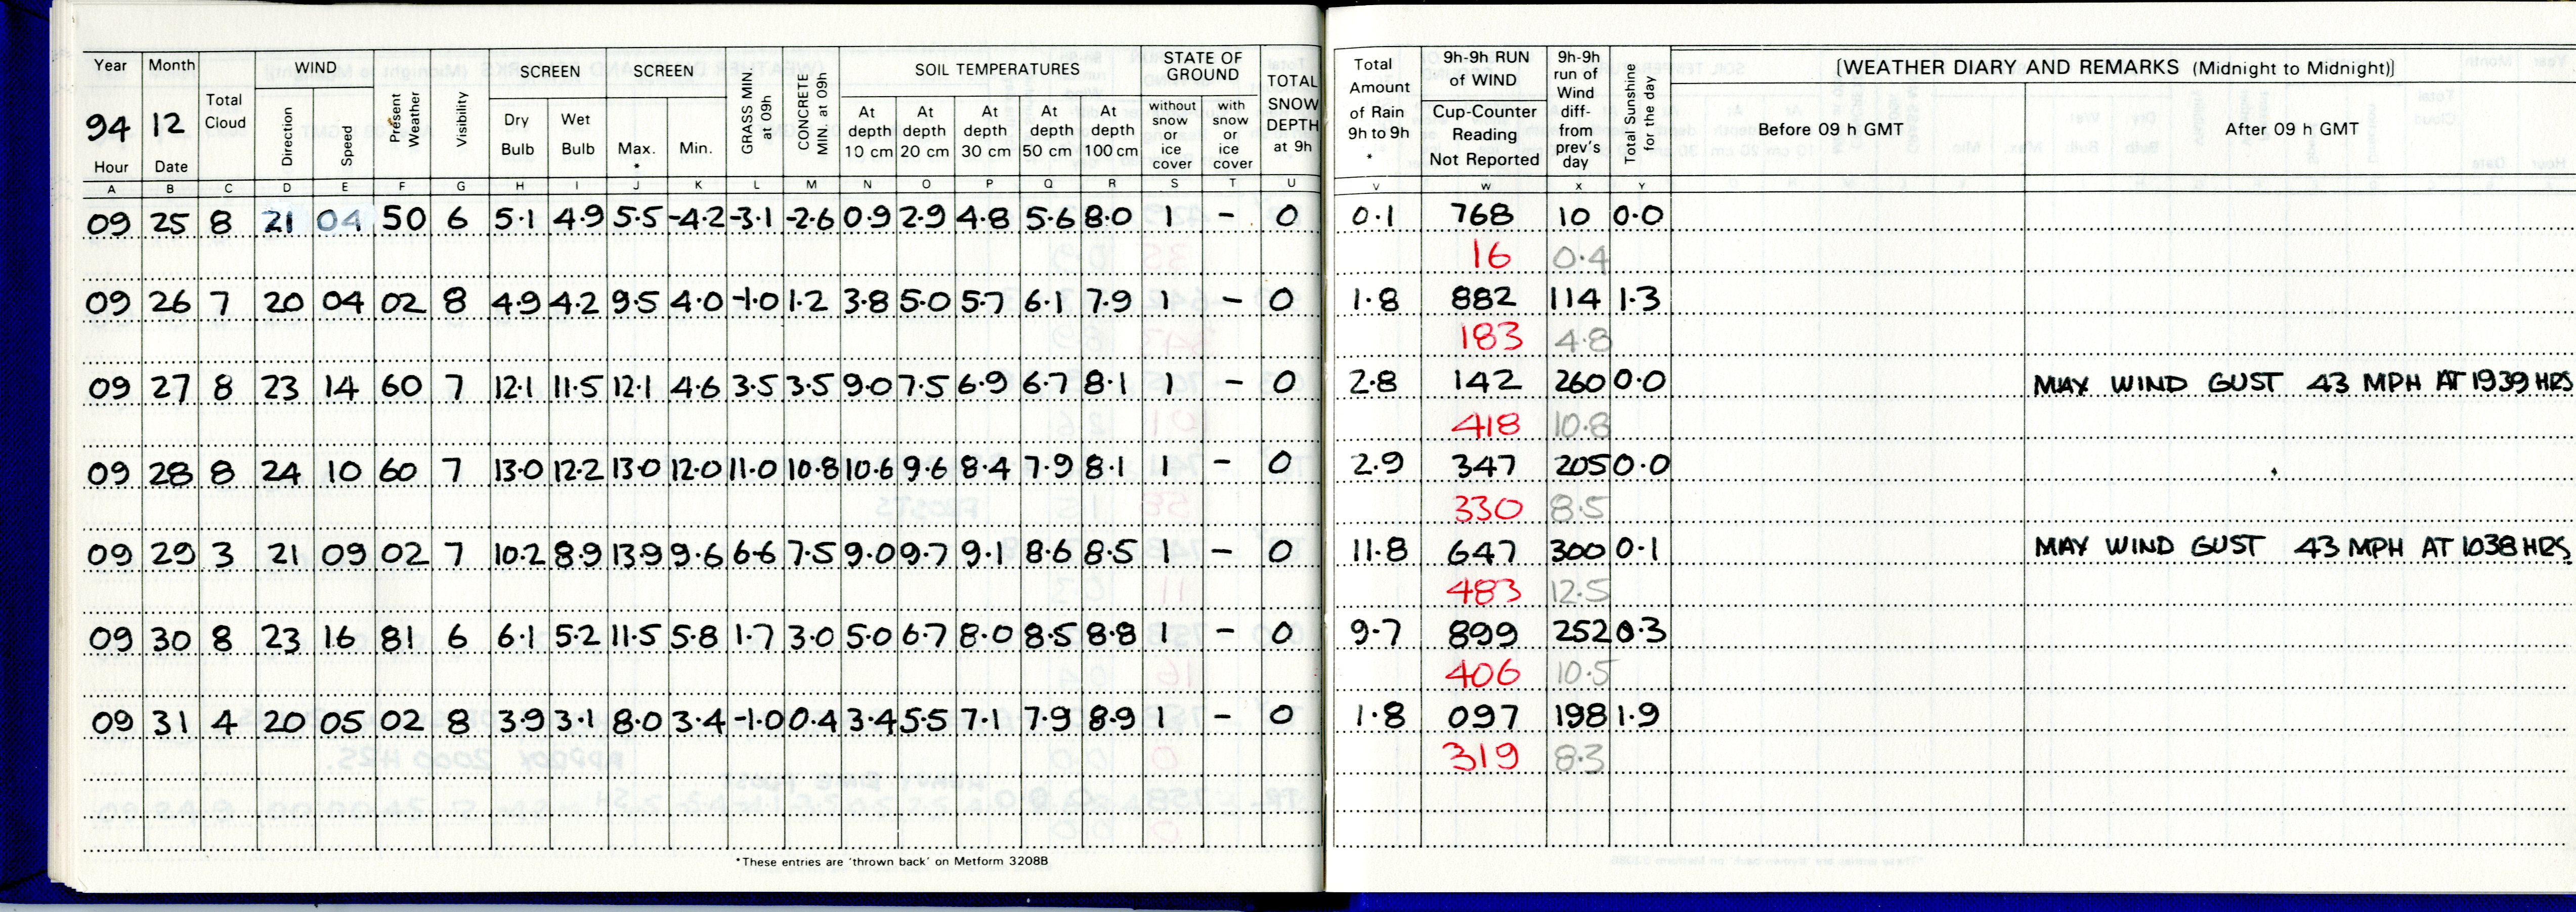 Year Month Total Cloud WIND Present Weather Visibility SCREEN SCREEN GRASS MIN. at 09h CONCRETE MIN. at 09h SOIL TEMPERATURES STATE OF GROUND TOTAL SNOW DEPTH at 9h Total Amount of Rain 9h to 9h * 9h-9h RUN of WIND 9h-9h run of Wind diff- from prev's day Total Sunshine for the day [WEATHER DIARY AND REMARKS (Midnight to Midnight)]
94 12 Direction Speed Dry Bulb Wet Bulb Max. * Min. At depth 10 cm At depth 20 cm At depth 30 cm At depth 50 cm At depth 100 cm without snow or ice cover with snow or ice cover Cup-Counter Reading Not Reported Before 09 h GMT After 09 h GMT
Hour Date
A B C D E F G H I J K L M N O P Q R S T U V W X Y
09 25 8 21 04 50 6 5.1 4.9 5.5 -4.2 -3.1 -2.6 0.9 2.9 4.8 5.6 8.0 1 - 0 0.1 768 10 0.0
16 0.4
09 26 7 20 04 02 8 4.9 4.2 9.5 4.0 -1.0 1.2 3.8 5.0 5.7 6.1 7.9 1 - 0 1.8 882 114 1.3
183 4.8
09 27 8 23 14 60 7 12.1 11.5 12.1 4.6 3.5 3.5 9.0 7.5 6.9 6.7 8.1 1 - 0 2.8 142 260 0.0 MAX WIND GUST 43 MPH AT 1939 HRS
418 10.8
09 28 8 24 10 60 7 13.0 12.2 13.0 12.0 11.0 10.8 10.6 9.6 8.4 7.9 8.1 1 - 0 2.9 347 205 0.0
330 8.5
09 29 3 21 09 02 7 10.2 8.9 13.9 9.6 6.6 7.5 9.0 9.7 9.1 8.6 8.5 1 - 0 11.8 647 300 0.1 MAX WIND GUST 43 MPH AT 1038 HRS.
483 12.5
09 30 8 23 16 81 6 6.1 5.2 11.5 5.8 1.7 3.0 5.0 6.7 8.0 8.5 8.8 1 - 0 9.7 899 252 0.3
406 10.5
09 31 4 20 05 02 8 3.9 3.1 8.0 3.4 -1.0 0.4 3.4 5.5 7.1 7.9 8.9 1 - 0 1.8 097 198 1.9
319 8.3
*These entries are 'thrown back' on Metform 3208B